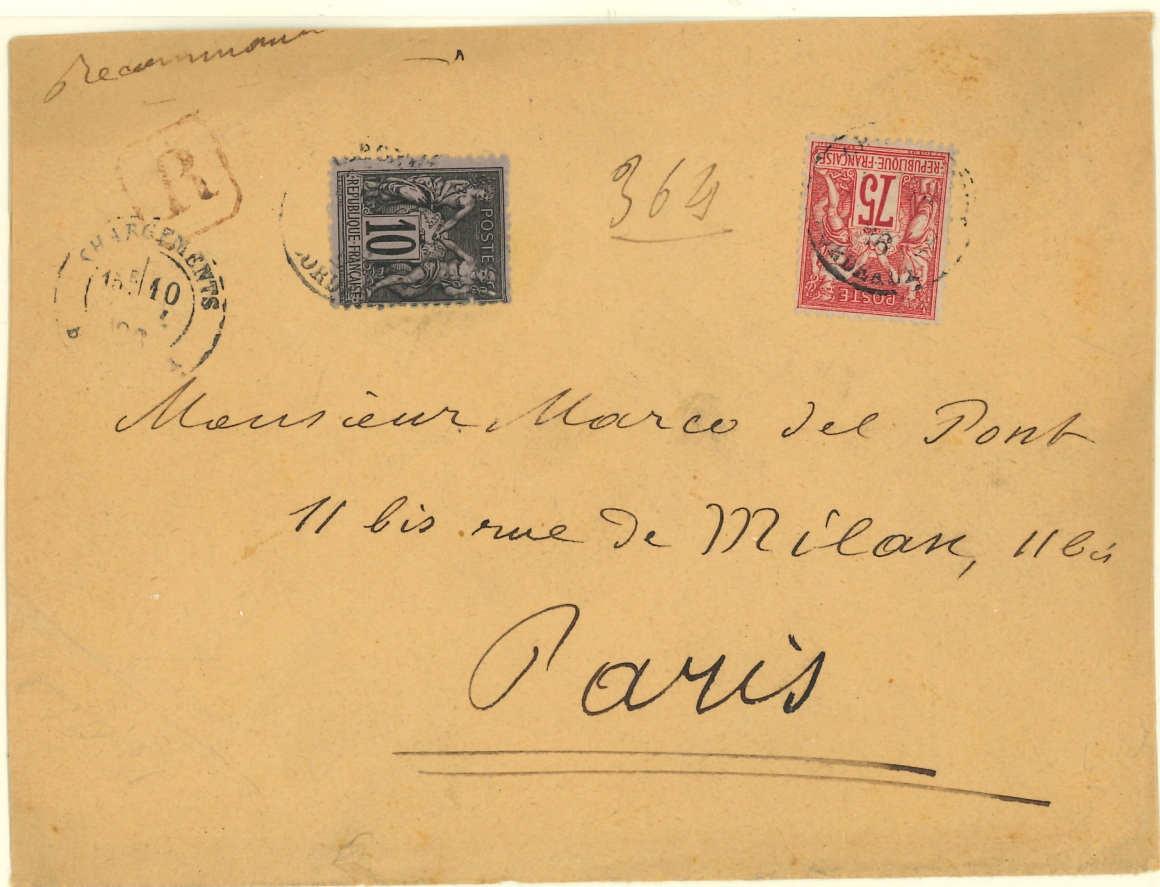 Recommandé
R
364
CHARGEMENTS
10
POSTE
10
REPUBLIQUE FRANÇAISE
REPUBLIQUE FRANÇAISE
75
POSTE
Monsieur Marco del Pont
11 bis rue de Milan, 11 bis
Paris